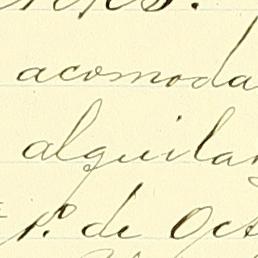 acomoda
alquilar
1º de Oct